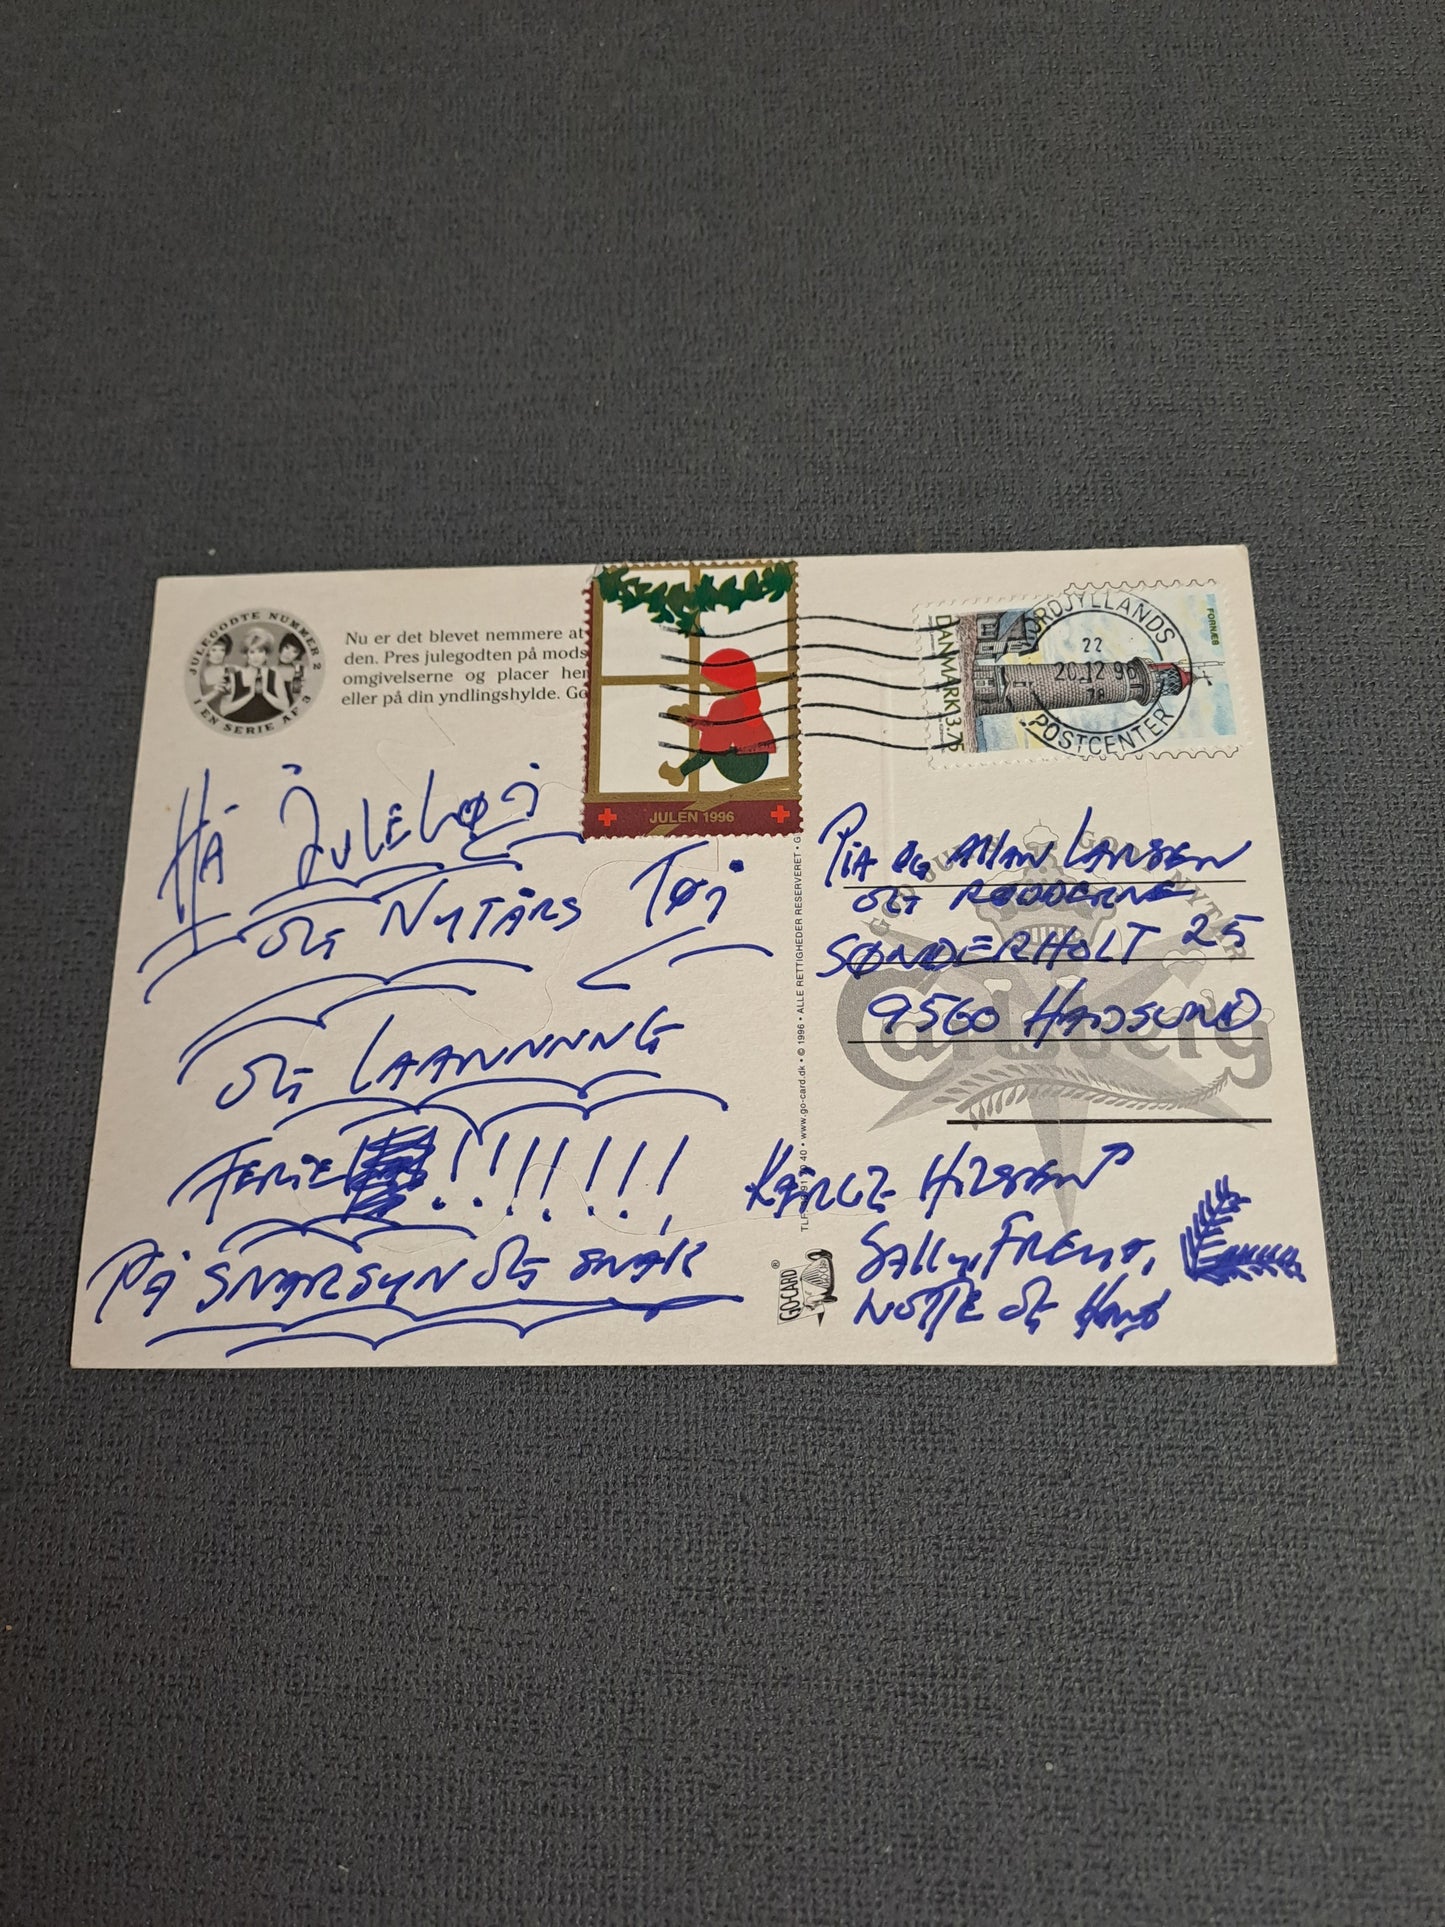 JULEGODTE NUMMER 2
I EN SERIE AF 3
Nu er det blevet nemmere at
den. Pres julegodten på mods
omgivelserne og placer her
eller på din yndlingshylde. Go
JULEN 1996
DANMARK 3.75
FORNÆS
NORDJYLLANDS
22
20.12.96
78
POSTCENTER
HÅ JULELØJ
OG NYTÅRS TØJ
OG LAANNNNG
FERIE !!!!!!!
PÅ SNARSYN OG SNAK
• © 1996 • ALLE RETTIGHEDER RESERVERET • G
www.go-card.dk
GO-CARD®
GOD JUL & GODT NYTÅR
Carlsberg
PIA OG AllAN LARSEN
OG RØDDERNE
SØNDERHOLT 25
9560 HADSUND
KÆRLIG HILSEN
SALLY, FREYA,
NOTTE OG